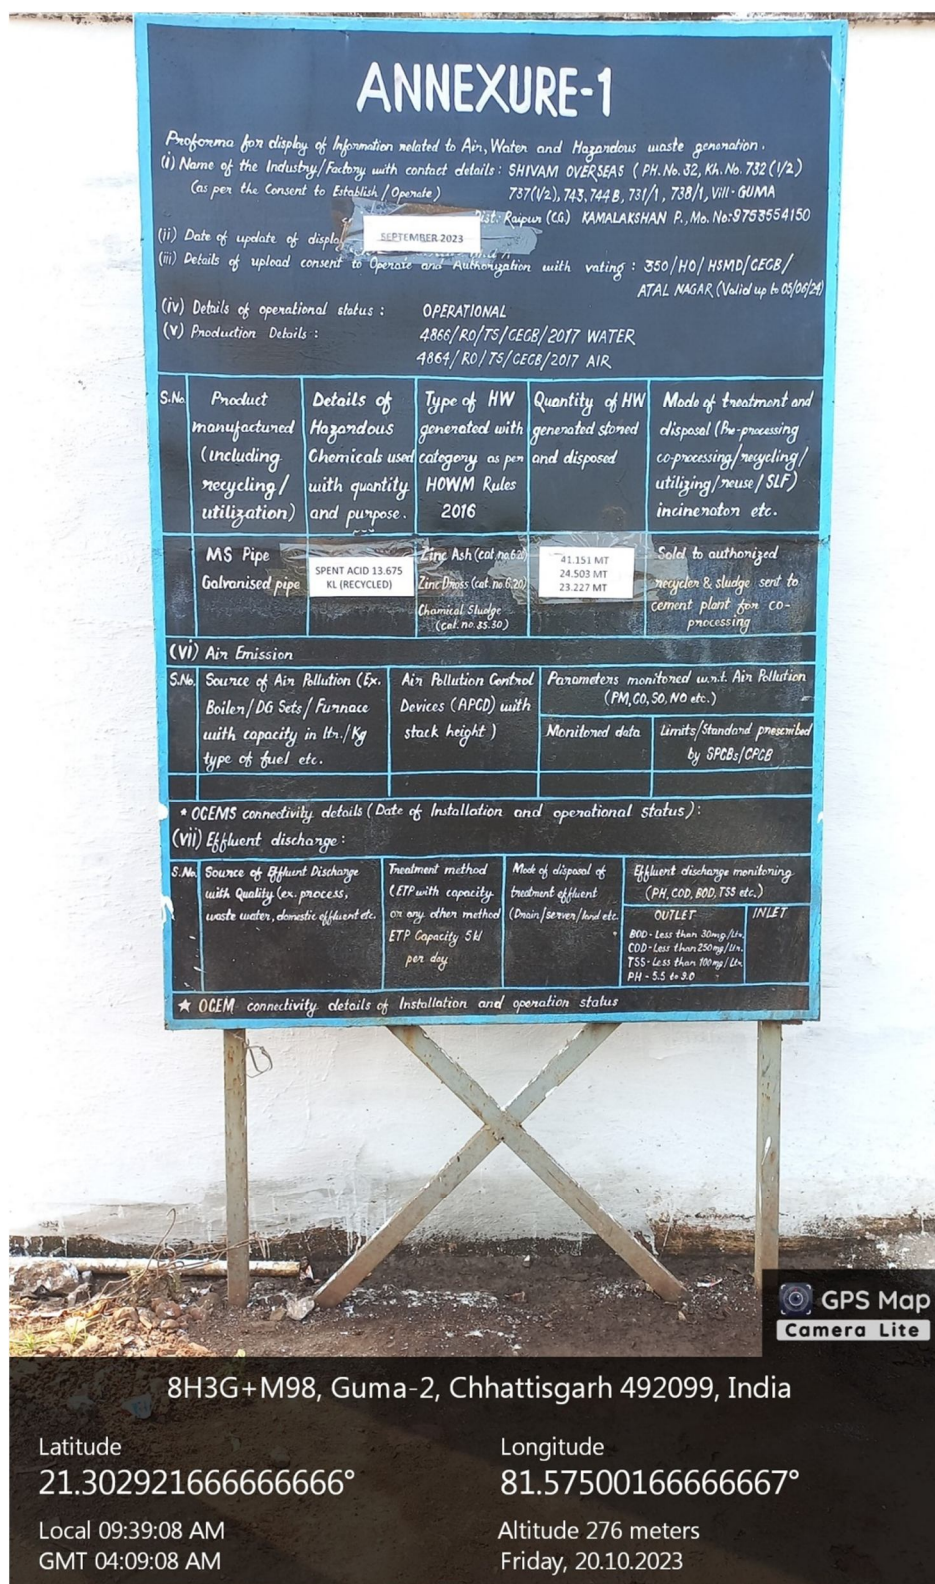 ANNEXURE-1
Proforma for display of Information related to Air, Water and Hazardous waste generation.
(i) Name of the Industry/Factory with contact details : SHIVAM OVERSEAS ( PH. No. 32, Kh. No. 732 (1/2)
(as per the Consent to Establish / Operate) 737(1/2), 743, 744 B, 731/1, 738/1, Vill- GUMA
Dist: Raipur (CG) KAMALAKSHAN P., Mo. No:9753554150
(ii) Date of update of display SEPTEMBER 2023
(iii) Details of upload consent to Operate and Authorization with vating : 350/HO/HSMD/CECB/
ATAL NAGAR (Valid up to 05/06/24)
(iv) Details of operational status : OPERATIONAL
(v) Production Details : 4866/RO/TS/CECB/2017 WATER
4864/RO/TS/CECB/2017 AIR
S.No.
Product
manufactured
(including
recycling/
utilization)
Details of
Hazardous
Chemicals used
with quantity
and purpose.
Type of HW
generated with
category as per
HOWM Rules
2016
Quantity of HW
generated stored
and disposed
Mode of treatment and
disposal (Pre-processing
co-processing/recycling/
utilizing/reuse/SLF)
incinerator etc.
MS Pipe
Galvanised pipe
SPENT ACID 13.675
KL (RECYCLED)
Zinc Ash (cat. no.6.20)
Zinc Dross (cat. no 6.20)
Chamical Sludge
(cat. no. 35.30)
41.151 MT
24.503 MT
23.227 MT
Sold to authorized
recycler & sludge sent to
cement plant for co-
processing
(vi) Air Emission
S.No.
Source of Air Pollution (Ex.
Boiler/DG Sets/Furnace
with capacity in ltr./Kg
type of fuel etc.
Air Pollution Control
Devices (APCD) with
stack height )
Parameters monitored w.r.t. Air Pollution
(PM, CO, SO, NO etc.)
Monitored data
Limits/Standard prescribed
by SPCBs/CPCB
* OCEMS connectivity details ( Date of Installation and operational status) :
(vii) Effluent discharge :
S.No.
Source of Effluent Discharge
with Quality (ex. process,
waste water, domestic effluent etc.
Treatment method
(ETP with capacity
or any other method
ETP Capacity 5 kl
per day
Mode of disposal of
treatment effluent
(Drain/server/land etc.
Effluent discharge monitoring
(PH, COD, BOD, TSS etc.)
OUTLET
BOD - Less than 30mg/Ltr.
COD - Less than 250mg/Ltr.
TSS - Less than 100mg/Ltr.
PH - 5.5 to 9.0
INLET
★ OCEM connectivity details of Installation and operation status
GPS Map
Camera Lite
8H3G+M98, Guma-2, Chhattisgarh 492099, India
Latitude
21.302921666666666°
Longitude
81.57500166666667°
Local 09:39:08 AM
GMT 04:09:08 AM
Altitude 276 meters
Friday, 20.10.2023